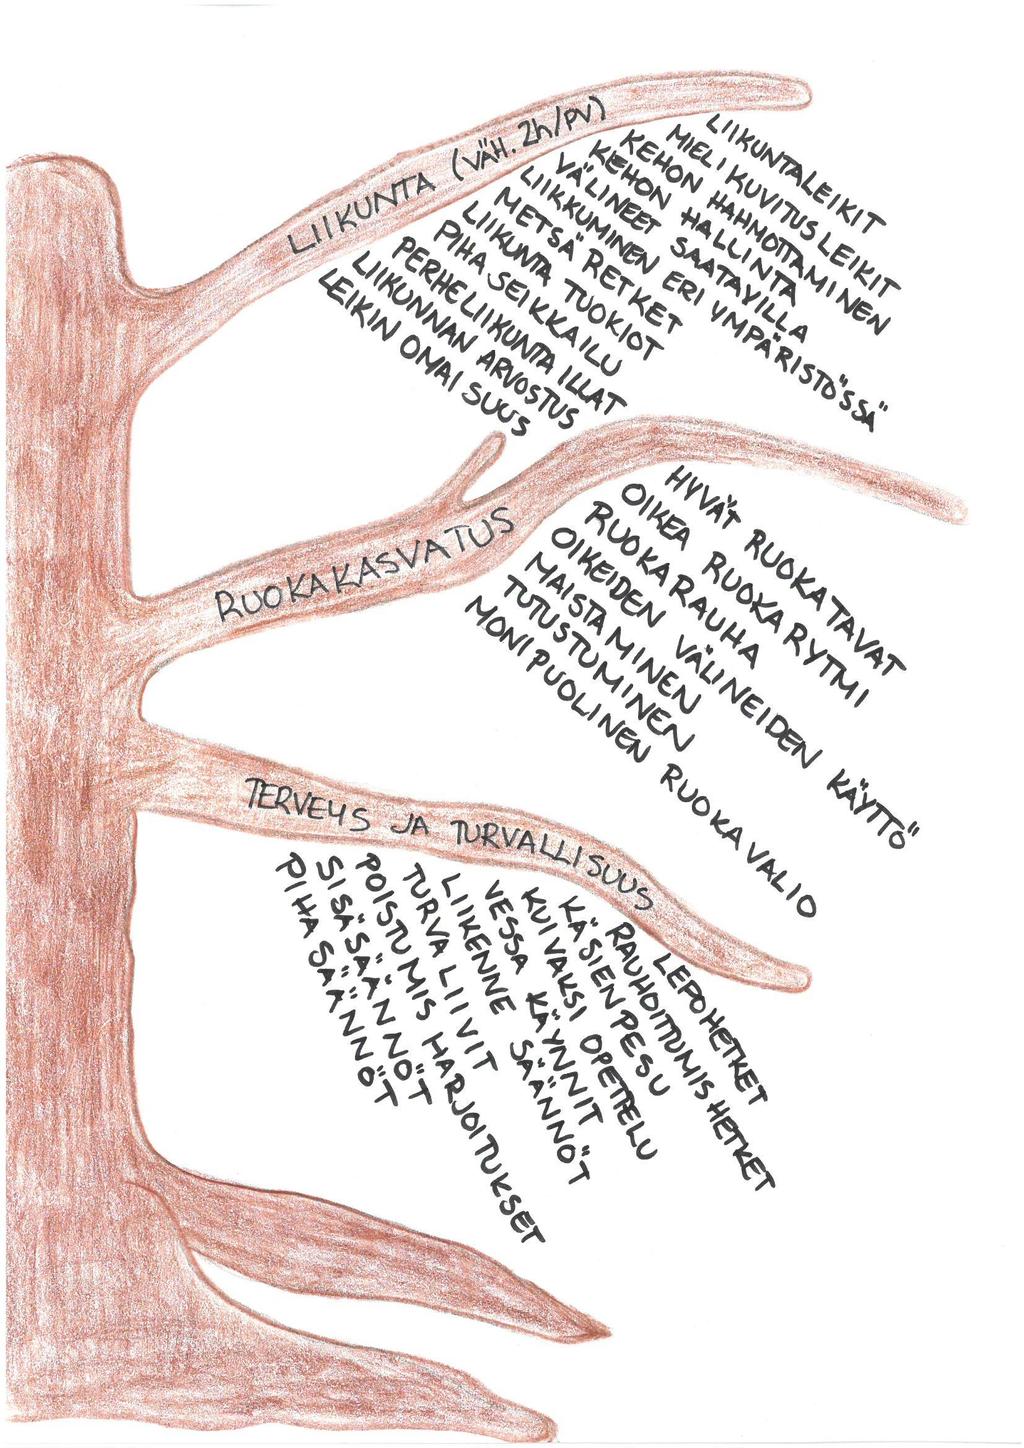 LIIKUNTA (VÄH. 2h/PV)
LIIKUNTALEIKIT
MIELIKUVITUSLEIKIT
KEHON HAHMOTTAMINEN
KEHON HALLINTA
VÄLINEET SAATAVILLA
LIIKKUMINEN ERI YMPÄRISTÖSSÄ
METSÄRETKET
LIIKUNTATUOKIOT
PIHASEIKKAILU
PERHELIIKUNTAILLAT
LIIKUNNAN ARVOSTUS
LEIKIN OMAISUUS
RUOKAKASVATUS
HYVÄT RUOKATAVAT
OIKEA RUOKARYTMI
RUOKARAUHA
OIKEIDEN VÄLINEIDEN KÄYTTÖ
MAISTAMINEN
TUTUSTUMINEN
MONIPUOLINEN RUOKAVALIO
TERVEYS JA TURVALLISUUS
LEPOHETKET
RAUHOITTUMISHETKET
KÄSIENPESU
KUIVAKSI OPETTELU
VESSA KÄYNNIT
LIIKENNE SÄÄNNÖT
TURVALIIVIT
POISTUMIS HARJOITUKSET
SISÄSÄÄNNÖT
PIHASÄÄNNÖT